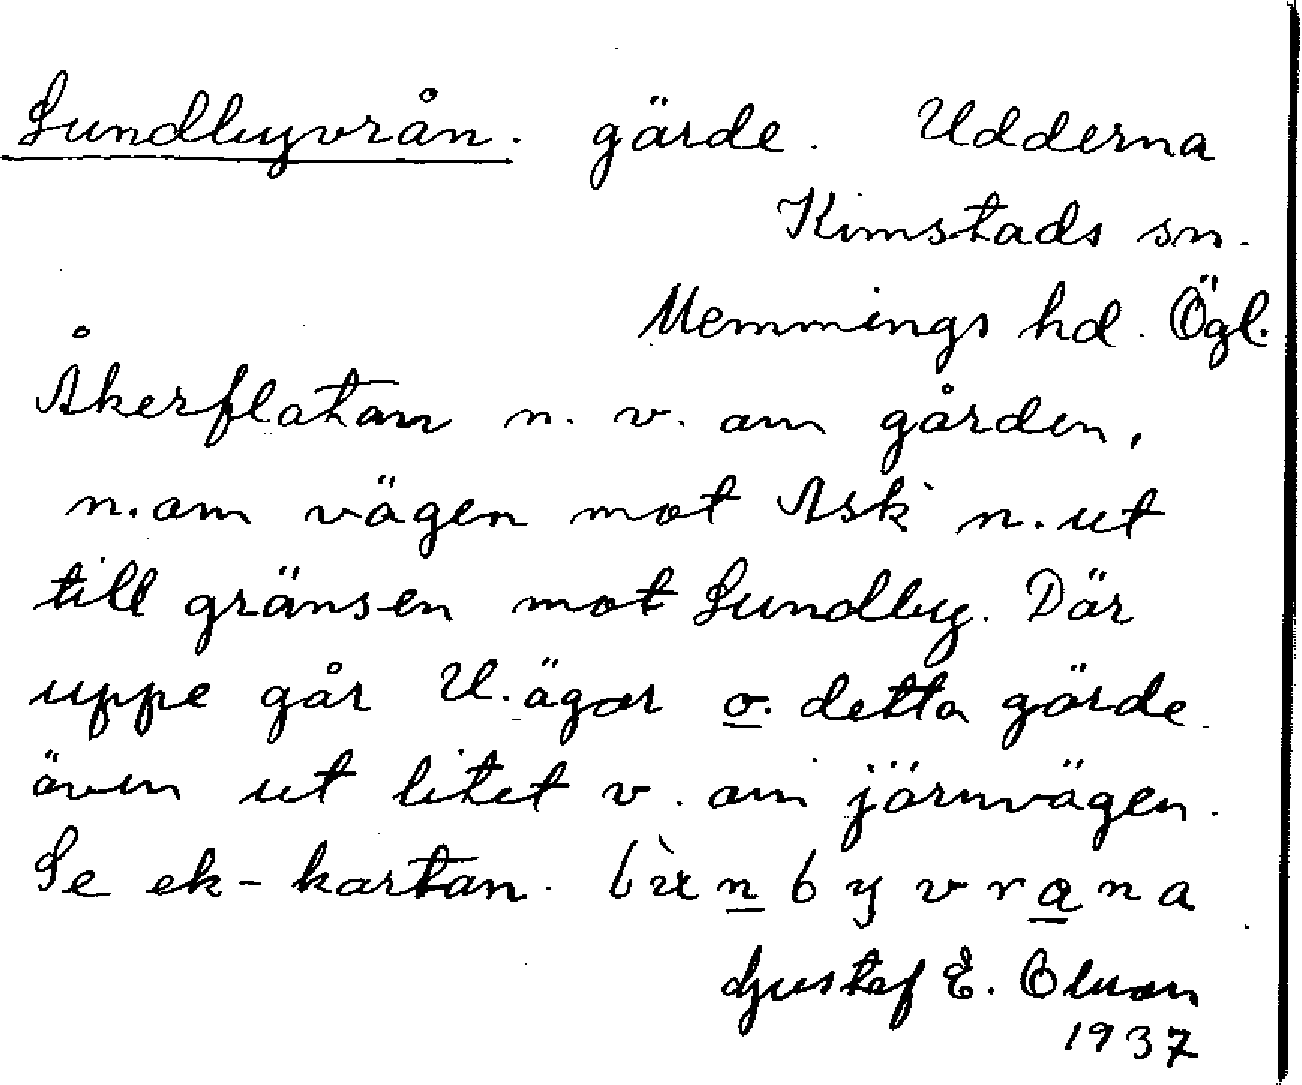 Lundbyvrån. gärde. Udderna
Kimstads sn.
Memmings hd. Ögl.
Åkerflatan n. v. om gården,
n. om vägen mot Ask n. ut
till gränsen mot Lundby. Där
uppe går U. ägor o. detta gärde
även ut litet v. om järnvägen.
Se ek-kartan.
Gustaf E. Olsson
1937